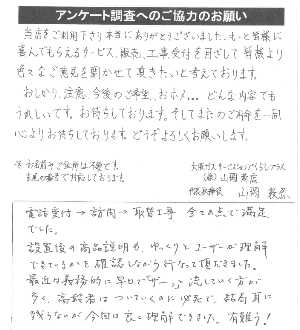 アンケート調査へのご協力のお願い
当店をご利用下さり本当にありがとうございました。もっと皆様に
喜んでもらえるサービス、販売、工事受付を目ざして皆様より
色々なご意見を聞かせて頂きたいと考えております。
おしかり、注意、今後のご希望、おホメ… どんな内容でも
うれしいです。お待ちしております。そしてまたのご利用を一同
心よりお待ちしております。どうぞよろしくお願いします。
※お名前やご住所は不要です。
(株)山岡
代表取締役 山岡
電話受付→訪問→取替工事 全ての点で満足
でした。
設置後の商品説明も、ゆっくりとユーザーが理解
できているかを確認しながら行なって頂きました。
最近は義務的に早口でザーッと流していく方が
多く、高齢者はついていくのに必死で、結局耳に
残らないが今回は良く理解できました。有難う!